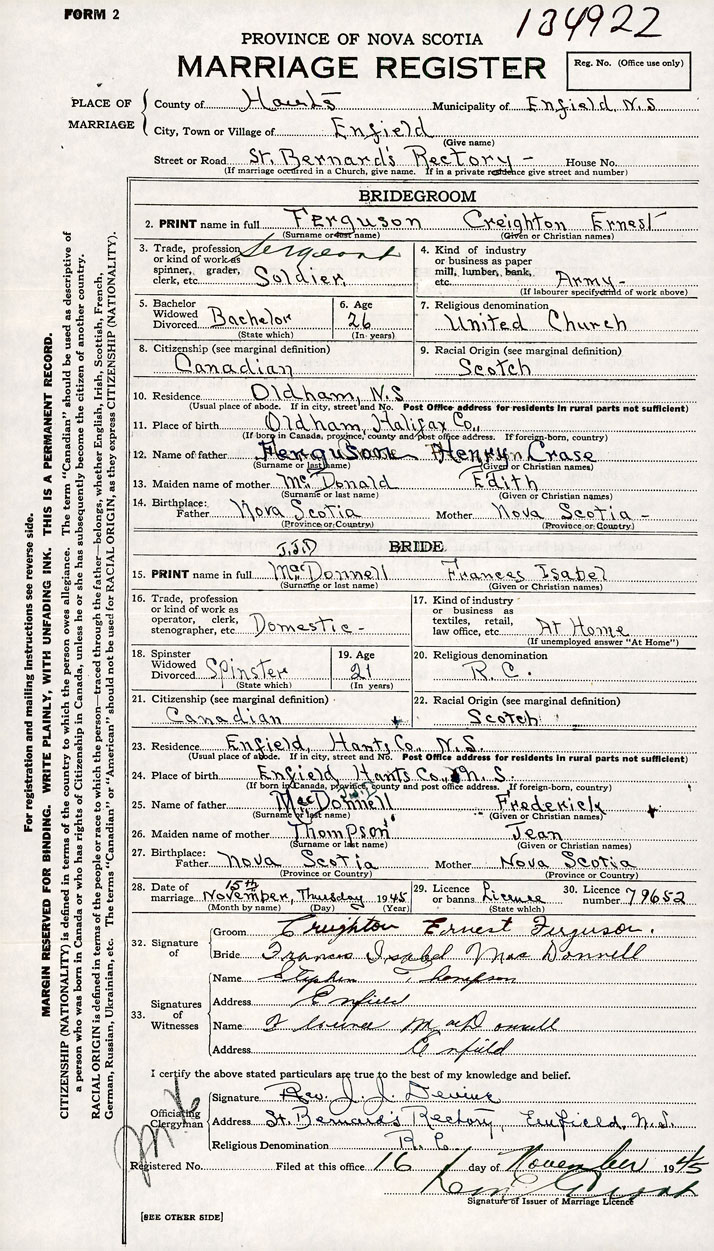 FORM 2
134922
PROVINCE OF NOVA SCOTIA
MARRIAGE REGISTER
Reg. No. (Office use only)
PLACE OF MARRIAGE
County of Hants Municipality of Enfield, N.S
City, Town or Village of Enfield
(Give name)
Street or Road St. Bernard's Rectory - House No.
(If marriage occurred in a Church, give name. If in a private residence give street and number)
BRIDEGROOM
2. PRINT name in full Ferguson Creighton Ernest
(Surname or last name) (Given or Christian names)
3. Trade, profession or kind of work as spinner, grader, clerk, etc. Sergeant Soldier
4. Kind of industry or business as paper mill, lumber, bank, etc. Army -
(If labourer specify kind of work above)
5. Bachelor Widowed Divorced Bachelor
(State which)
6. Age 26
(In years)
7. Religious denomination
United Church
8. Citizenship (see marginal definition)
Canadian
9. Racial Origin (see marginal definition)
Scotch
10. Residence Oldham, N.S
(Usual place of abode. If in city, street and No. Post Office address for residents in rural parts not sufficient)
11. Place of birth Oldham, Halifax Co.,
(If born in Canada, province, county and post office address. If foreign-born, country)
12. Name of father Ferguson Henry Crase
(Surname or last name) (Given or Christian names)
13. Maiden name of mother McDonald Edith
(Surname or last name) (Given or Christian names)
14. Birthplace: Father Nova Scotia Mother Nova Scotia -
(Province or Country) (Province or Country)
J.J.D
BRIDE
15. PRINT name in full MacDonnell Frances Isabel
(Surname or last name) (Given or Christian names)
16. Trade, profession or kind of work as operator, clerk, stenographer, etc Domestic -
17. Kind of industry or business as textiles, retail, law office, etc. At Home
(If unemployed answer "At Home")
18. Spinster Widowed Divorced Spinster
(State which)
19. Age 21
(In years)
20. Religious denomination
R.C.
21. Citizenship (see marginal definition)
Canadian
22. Racial Origin (see marginal definition)
Scotch
23. Residence Enfield, Hants Co., N.S.
(Usual place of abode. If in city, street and No. Post Office address for residents in rural parts not sufficient)
24. Place of birth Enfield, Hants Co., N.S.
(If born in Canada, province, county and post office address. If foreign-born, country)
25. Name of father MacDonnell Frederick
(Surname or last name) (Given or Christian names)
26. Maiden name of mother Thompson Jean
(Surname or last name) (Given or Christian names)
27. Birthplace: Father Nova Scotia Mother Nova Scotia
(Province or Country) (Province or Country)
28. Date of marriage November, 15th Thursday 1945
(Month by name) (Day) (Year)
29. Licence or banns License
(State which)
30. Licence number 79652
32. Signature of
Groom Creighton Ernest Ferguson.
Bride Frances Isabel MacDonnell
33. Signatures of Witnesses
Name Stephen Thompson
Address Enfield
Name MacDonnell
Address Enfield
I certify the above stated particulars are true to the best of my knowledge and belief.
Officiating Clergyman
Signature Rev. J. J. Devine
Address St. Bernard's Rectory, Enfield, N.S.
Religious Denomination R.C
Registered No. Filed at this office 16 day of November 1945
Signature of Issuer of Marriage Licence
[SEE OTHER SIDE]
For registration and mailing instructions see reverse side.
MARGIN RESERVED FOR BINDING. WRITE PLAINLY, WITH UNFADING INK. THIS IS A PERMANENT RECORD.
CITIZENSHIP (NATIONALITY) is defined in terms of the country to which the person owes allegiance. The term "Canadian" should be used as descriptive of
a person who was born in Canada or who has rights of Citizenship in Canada, unless he or she has subsequently become the citizen of another country.
RACIAL ORIGIN is defined in terms of the people or race to which the person—traced through the father—belongs, whether English, Irish, Scottish, French,
German, Russian, Ukrainian, etc. The terms "Canadian" or "American" should not be used for RACIAL ORIGIN, as they express CITIZENSHIP (NATIONALITY).